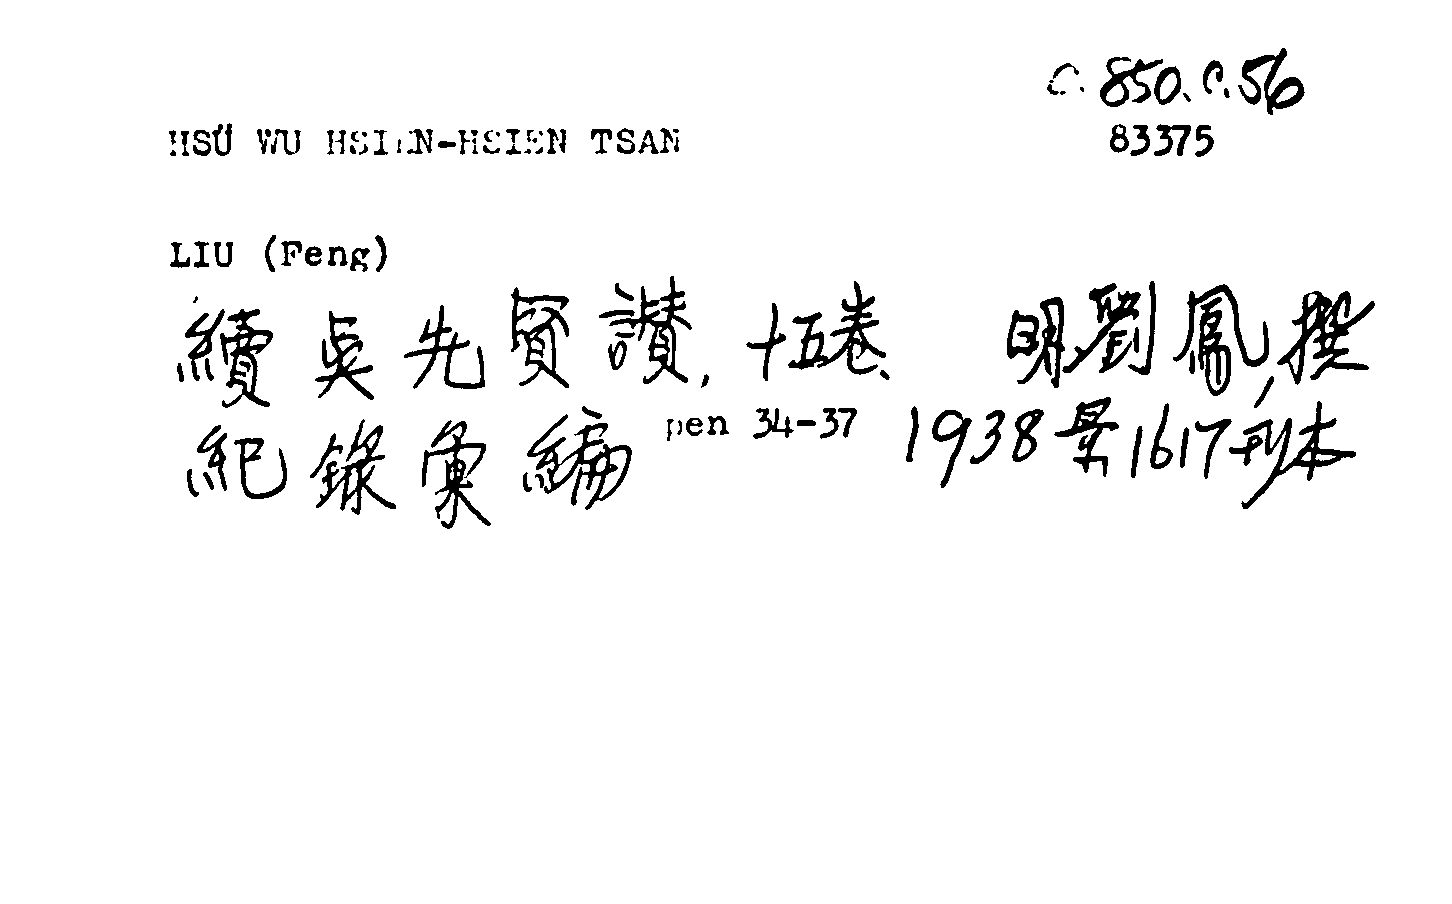 C.850.C.56
HSÜ WU HSIEN-HSIEN TSAN
83375
LIU (Feng)
續吳先賢讚, 十五卷、 明劉鳳, 撰
紀錄彙編 pen 34-37 1938景1617刊本